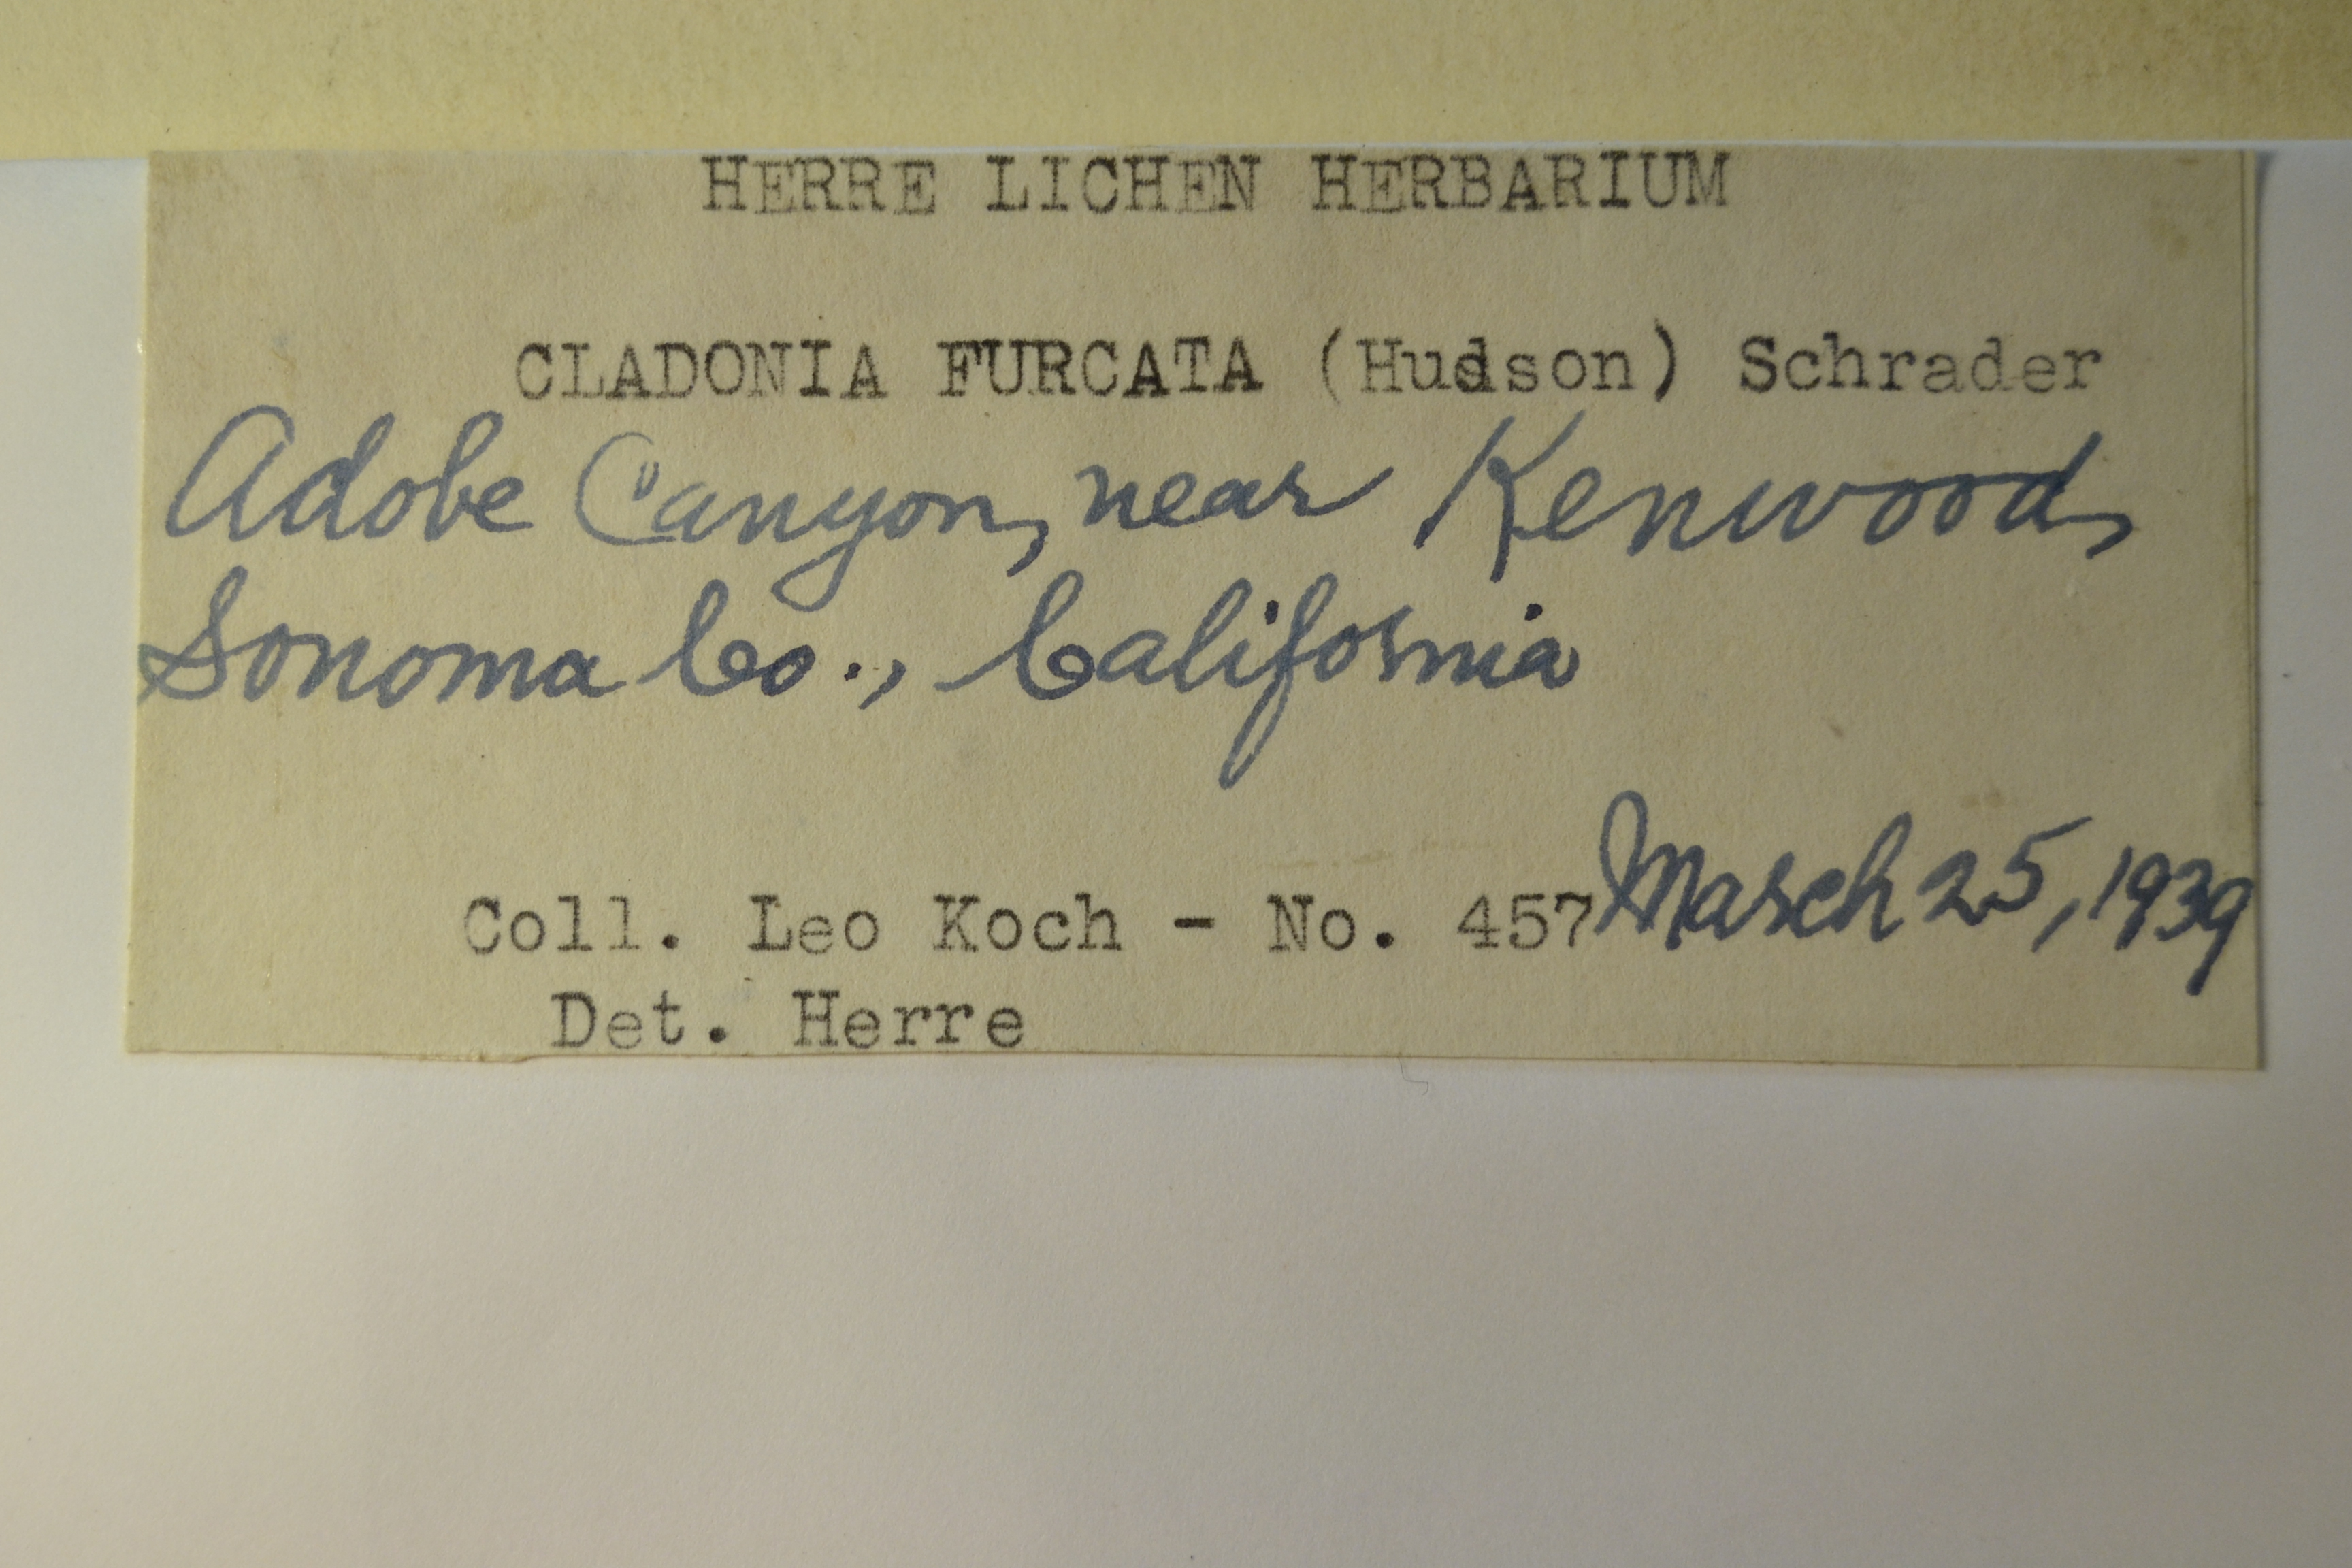 HERRE LICHEN HERBARIUM
CLADONIA FURCATA (Hudson) Schrader
Adobe Canyon, near Kenwood,
Sonoma Co., California
Coll. Leo Koch - No. 457 March 25, 1939
Det. Herre